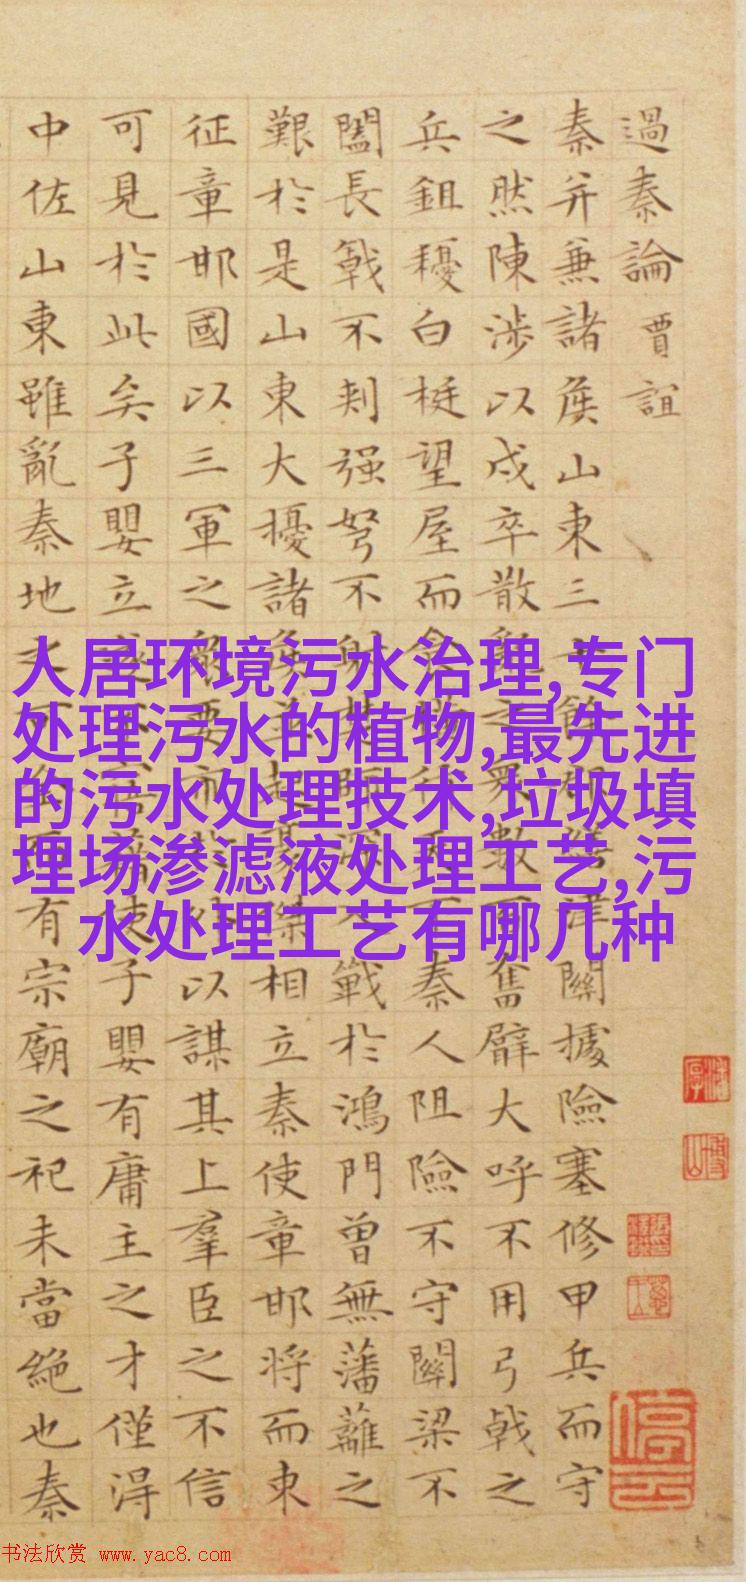 過秦論 賈誼
秦并兼諸侯山東三餘津關據險塞修甲兵而守
之然陳涉以戍卒散亂之眾數百奮臂大呼不用弓戟之
兵鉏耰白梃望屋而食下秦人阻險不守關梁不
闔長戟不刺强弩不射楚師深入戰於鴻門曾無藩籬之
艱於是山東大擾諸侯起豪傑相立秦使章邯將而東
征章邯國以三軍之眾要市以謀其上羣臣之不信
可見於此矣子嬰立遂不使子嬰有庸主之才僅得
中佐山東雖亂秦地之可全而有宗廟之祀未當絕也秦
人居环境污水治理,专门
处理污水的植物,最先进
的污水处理技术,垃圾填
埋场渗滤液处理工艺,污
水处理工艺有哪几种
书法欣赏 www.yac8.com